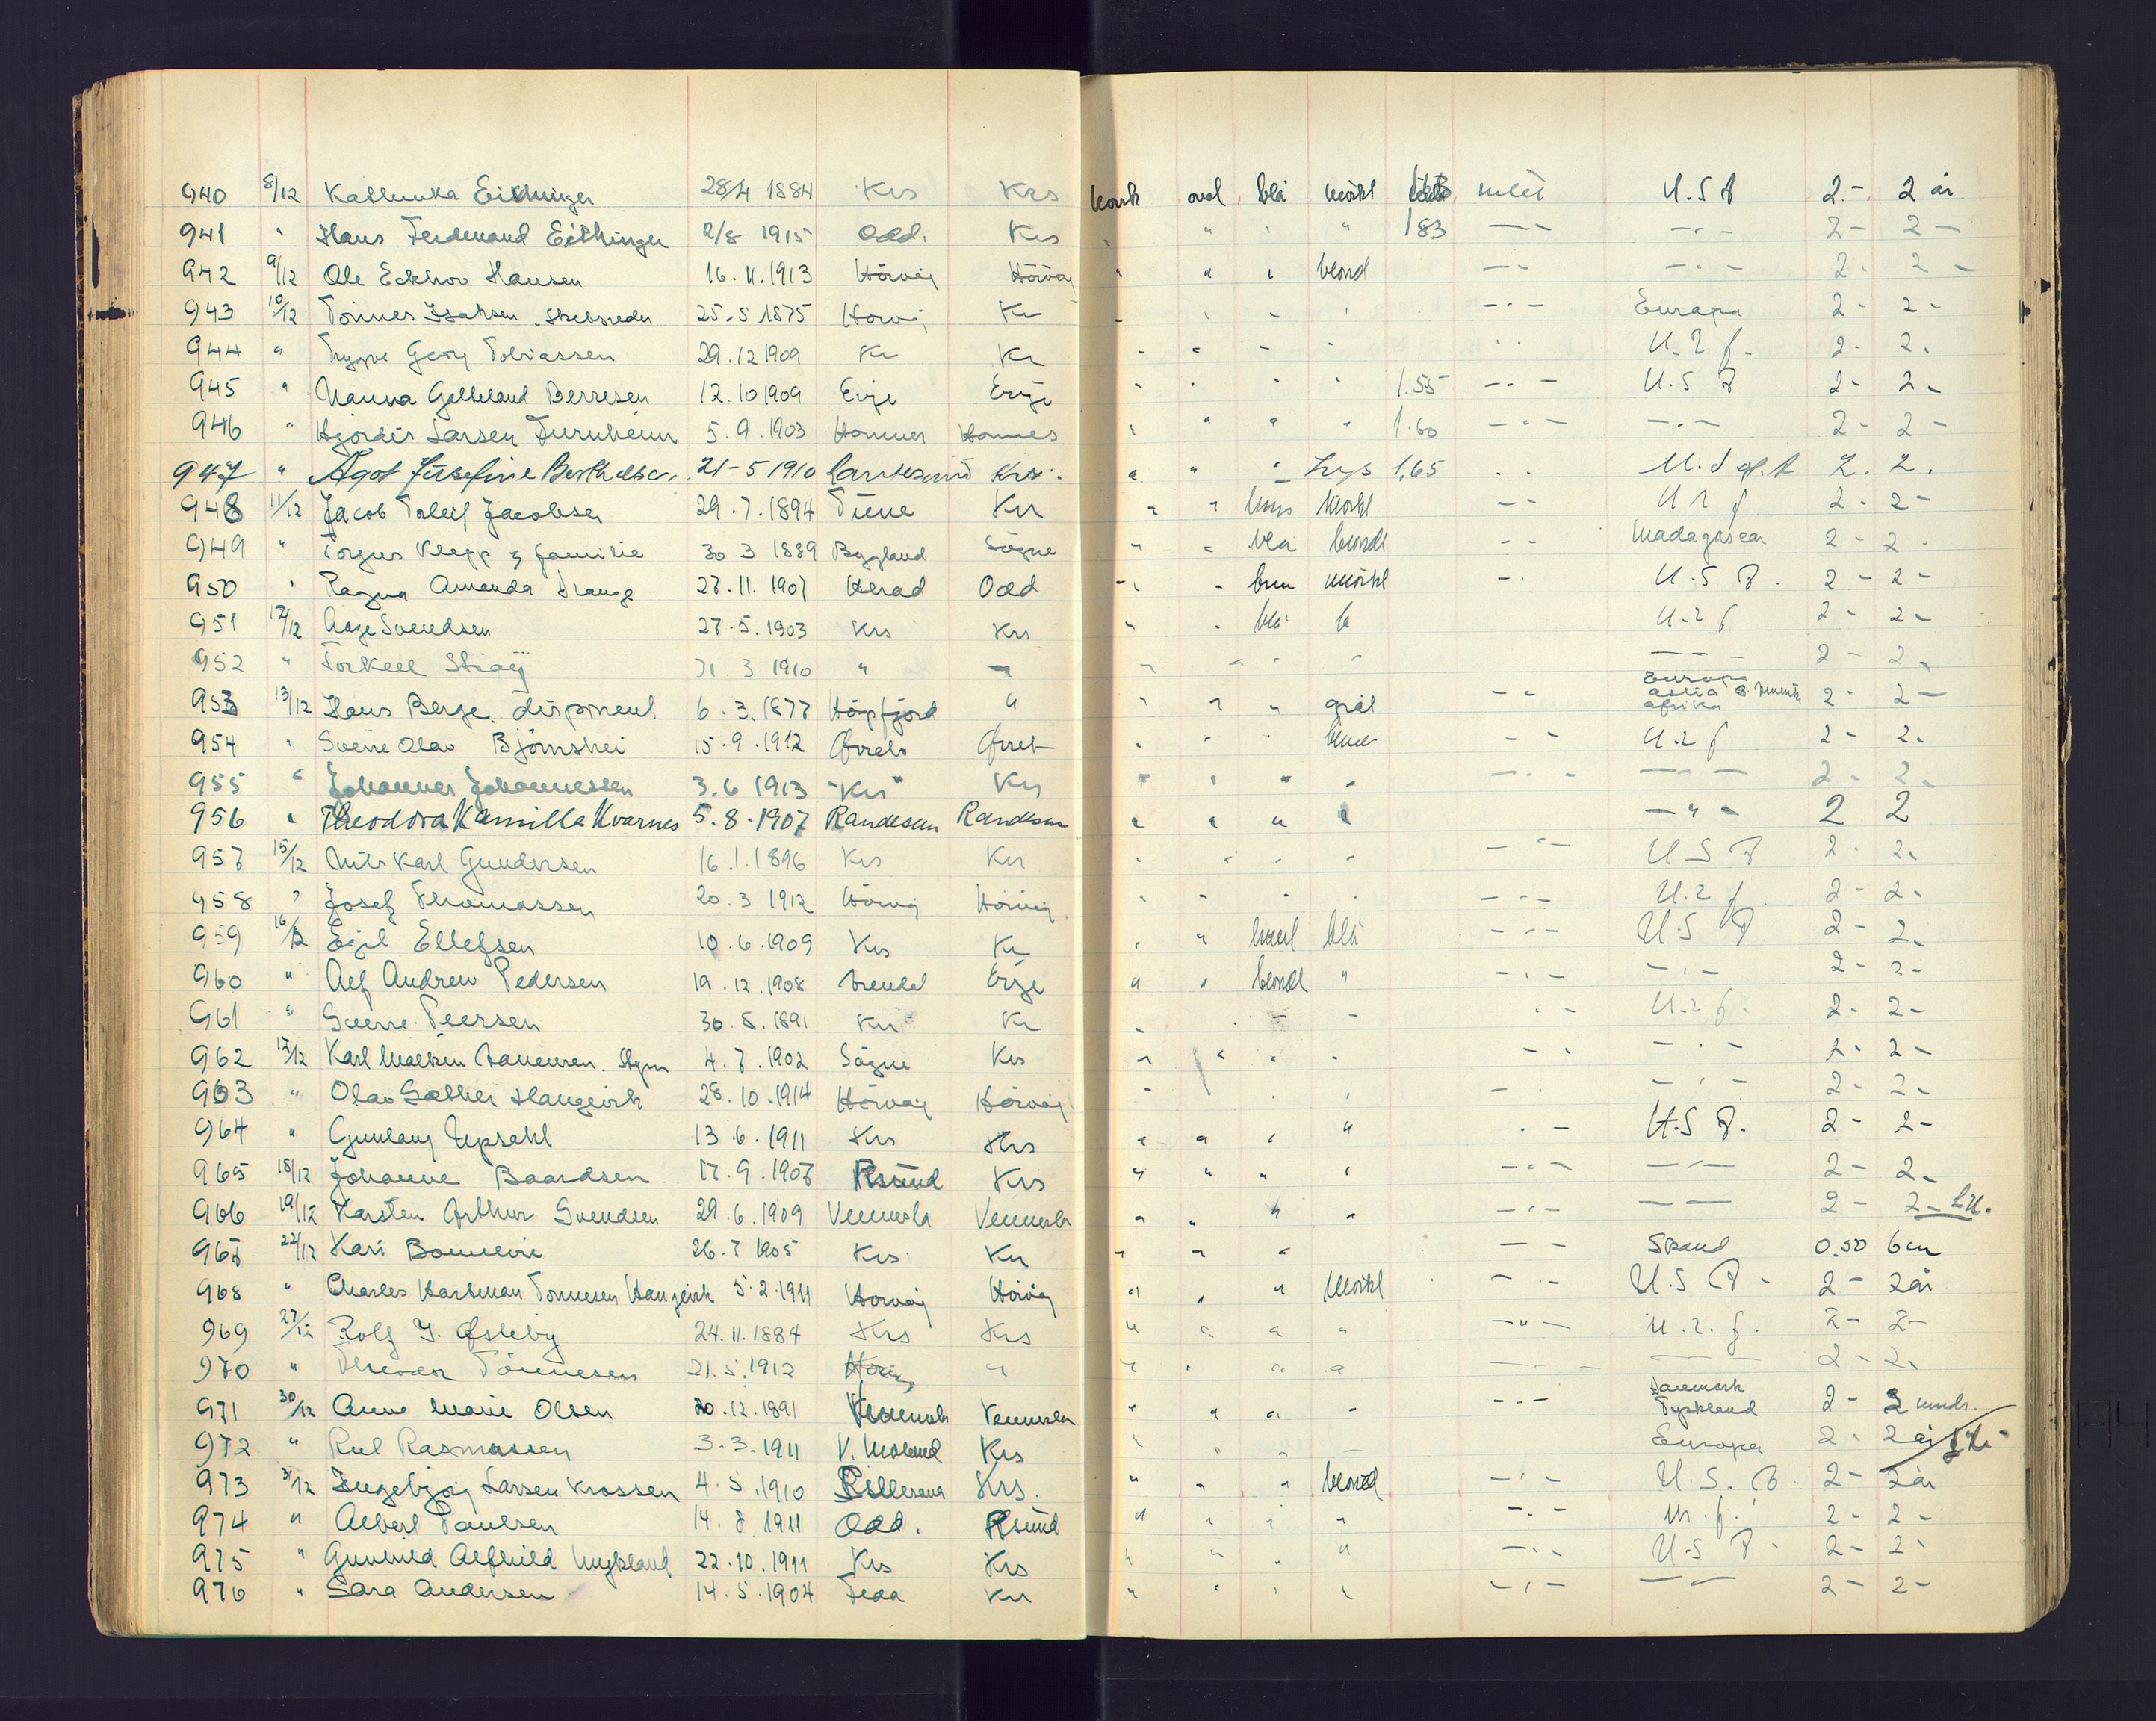 940 8/12 Kathinka Eithinger 28/4 1884 Krs Krs norsk oval blå mörkt intet U.S.A 2- 2 år
941 " Hans Ferdinand Eithinger 2/8 1915 Odd. Krs " " " " 183 -"- -"- 2- 2-
942 9/12 Ole Eckhov Hansen 16.11.1913 Hövåg Hövåg " " " blond -"- -"- 2- 2-
943 10/12 Tönnes Isaksen. Skibsreder 25.5.1875 Hövåg Kr " " " " -"- Europa 2- 2-
944 " Trygve Georg Tobiassen 29.12 1909 Kr Kr " " " " " U.r f. 2- 2-
945 " Nanna Berresen 12.10 1909 Evje Evje " " " " 1.55 -"- U.S A 2- 2-
946 " Hjördis Larsen Furuheim 5.9.1903 Hornnes Hornnes " " " " 1.60 -"- -"- 2- 2-
947 " Agot Josefine Berthelsen 21-5 1910 Krs. " " " Lys 1,65 " 2. 2.
948 11/12 Jacob Tolleif Jacobsen 29.7.1894 Krs " " brun mörkt -"- U r f 2- 2-
949 " Torgus Klepp & familie 30 3 1889 Bygland Sögne " " blå blondt -"- Madagascar 2- 2-
950 " Ragna Amanda 27.11.1907 Herad Odd " " brun mörkt -"- U.S A. 2- 2-
951 12/12 Aage Svendsen 27.5.1903 Krs Krs " " blå b U.r f 2- 2-
952 " Torkell Straÿ 31 3 1910 " " " " " " -"- 2- 2-
953 13/12 Hans Berge. disponent 6.3.1877 Höpfjord " " " " gråt -"- Europa Asia Afrika 2- 2-
954 " Sverre Olav Björnshei 15.9.1912 " " " -"- U.r f 2- 2-
955 " Johannes Johannessen 3.6 1913 Krs Krs " " " " -"- -"- 2- 2-
956 " Theodora Kamilla Kvarnes 5.8.1907 Randesun Randesun " " " " -"- 2 2
957 15/12 Nils Karl Gundersen 16.1.1896 Krs Krs " " " " -"- U S A 2- 2-
958 " Josef Thomassen 20.3 1912 Hövåg Hövåg " " " " -"- U.r f. 2- 2-
959 16/12 Egil Ellefsen 10.6.1909 Krs Kr " " blå -"- U.S A 2- 2-
960 " Alf Andrew Pedersen 19.12.1908 Arendal Evje " " blond " -"- -"- 2- 2-
961 " Sverre Peersen 30.8.1891 Krs Kr " " " " -"- U.r f. 2- 2-
962 17/12 Karl 4.7.1902 Sögne Krs " " " " -"- -"- 2- 2-
963 " Olav Haugevik 28.10.1914 Hövåg Hövåg " " " -"- -"- 2- 2-
964 " Gunlaug Upsahl 13.6.1911 Krs Krs " " " " -"- U.S A. 2- 2-
965 18/12 Johanne Baardsen 17.9.1907 Rsund Krs " " " " -"- -"- 2- 2-
966 19/12 Karsten Arthur Svendsen 29.6.1909 Vennesla Vennesla " " " " -"- -"- 2- 2-
967 22/12 Kari Bonnevie 26.7 1905 Krs Kr " " " -"- 0.50 6
968 " Charles Hartman Tönnesen Haugevik 5.2.1911 Hövåg Hövåg " " " mörkt -"- U.S A- 2- 2år
969 27/12 Rolf 24.11.1884 Krs Krs " " " " -"- U.r.f. 2- 2-
970 " Tönnesen 21.5.1912 Hövåg " " " " " -"- -"- 2- 2-
971 30/12 Anna Marie Olsen 20.12.1891 Vennesla Vennesla " " " " -"- Danmark Tyskland 2- 2 mndr.
972 " Rasmussen 3.3.1911 V. Moland Krs " " " " Europa 2- 2 år
973 31/12 Ingebjörg Larsen Krossen 4.5.1910 Lillesand Krs. " " " blond -"- U.S.A 2- 2år
974 " Albert Paulsen 14.8 1911 Odd. Rsund " " " " -"- 2- 2-
975 " Gunhild Alfhild Mykland 22.10.1911 Krs Krs " " " " -"- U.S A- 2- 2-
976 " Sara Andersen 14.5.1904 Feda Kr " " " " -"- -"- 2- 2-